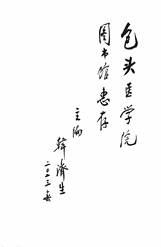 包头医学院
图书馆惠存
主编
韩济生
二〇〇三年